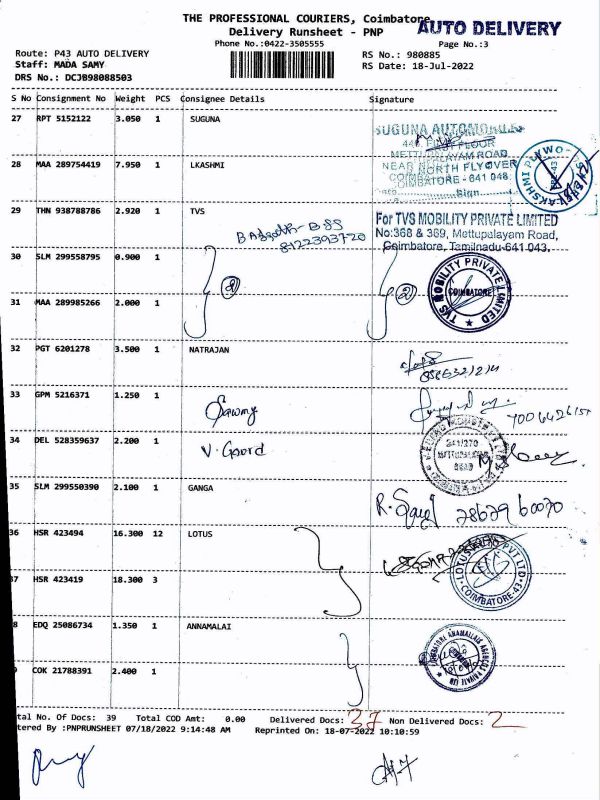 THE PROFESSIONAL COURIERS, Coimbatore
AUTO DELIVERY
Delivery Runsheet - PNP
Phone No.:0422-3505555
Page No.:3
Route: P43 AUTO DELIVERY
RS No.: 980885
Staff: MADA SAMY
RS Date: 18-Jul-2022
DRS No.: DCJB98088503
S No Consignment No Weight PCS Consignee Details Signature
27 RPT 5152122 3.050 1 SUGUNA
SUGUNA AUTOMOBILES
FIRST FLOOR
METTUPALAYAM ROAD
NEAR NORTH FLYOVER
COIMBATORE - 641 048
Sign
28 MAA 289754419 7.950 1 LKASHMI
29 THN 938788786 2.920 1 TVS
8122393720
For TVS MOBILITY PRIVATE LIMITED
No:368 & 369, Mettupalayam Road,
Coimbatore, Tamilnadu-641 043.
30 SLM 299558795 0.900 1
TVS MOBILITY PRIVATE LIMITED
COIMBATORE
31 MAA 289985266 2.000 1
32 PGT 6201278 3.500 1 NATRAJAN
33 GPM 5216371 1.250 1
34 DEL 528359637 2.200 1
V. Goord
341/370
ROAD
35 SLM 299550390 2.100 1 GANGA
36 HSR 423494 16.300 12 LOTUS
PVT LTD
COIMBATORE-43
37 HSR 423419 18.300 3
8 EDQ 25086734 1.350 1 ANNAMALAI
COK 21788391 2.400 1
tal No. Of Docs: 39 Total COD Amt: 0.00 Delivered Docs: 37 Non Delivered Docs: 2
tered By :PNPRUNSHEET 07/18/2022 9:14:48 AM Reprinted On: 18-07-2022 10:10:59